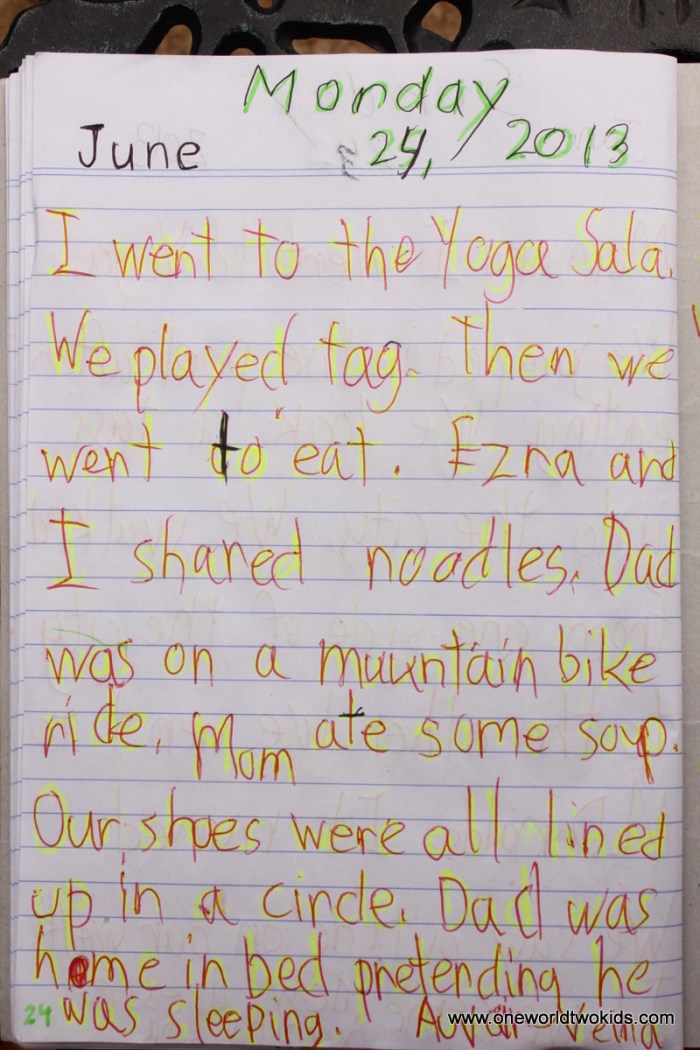 Monday
June 24, 2013
I went to the Yoga Sala.
We played tag. Then we
went to eat. Ezra and
I shared noodles. Dad
was on a muuntain bike
ride. Mom ate some soup.
Our shoes were all lined
up in a circle. Dad was
home in bed pretending he
24 was sleeping.
www.oneworldtwokids.com